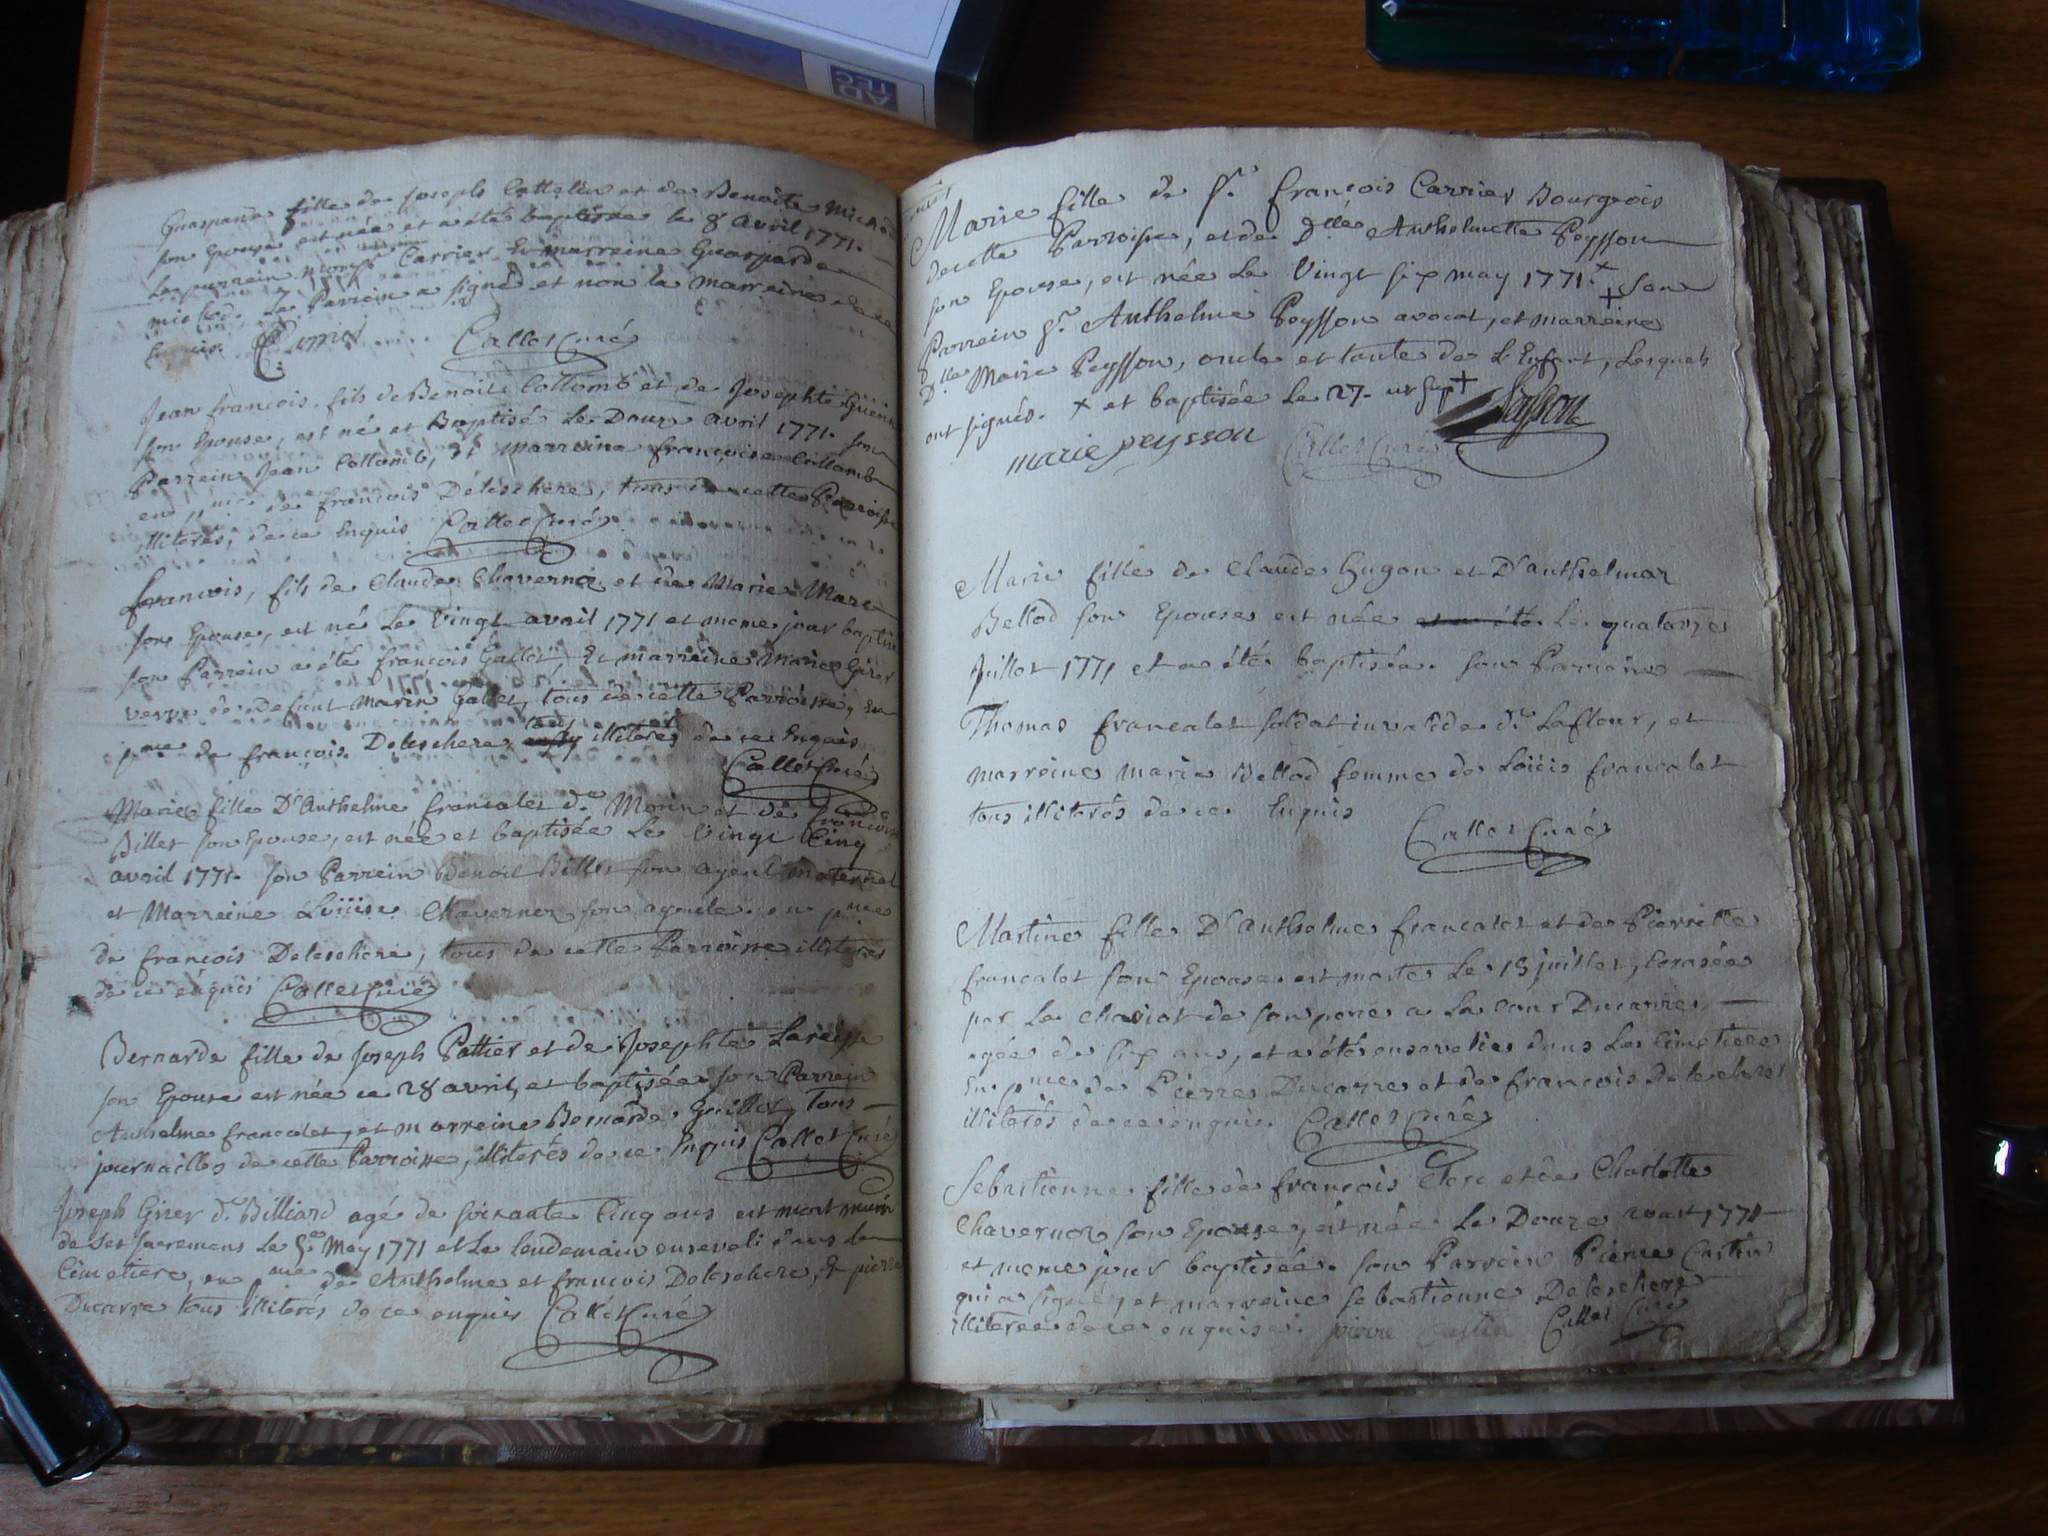 AD
TEC
fille de Joseph et de Benoite
son Epouse est née et a été baptisée le 8 avril 1771.
Le parrein Carrier Et marreine Guasparde
Le Parrein a signé et non la marreine
Callet Curé
Jean francois fils de Benoit Collomb et de Josephte
son Epouse, est né et Baptisé Le Douze avril 1771. son
Parrein Jean Collomb, et marreine françoise Collomb
de françois Deleschere, tous de cette Parroisse
illiterés, de ce Enquis Callet Curé
francois, fils de Claude Chavernoz et de Marie Mare
son Epouse, est né Le Vingt avril 1771 et meme jour baptisé
son Parrein a été françois Gallet Et marreine Marie
veuve de defunt Marin Gallet, tous de cette Parroisse, En
pnce de françois Deleschere tous illiterés de ce Enquis
Callet Curé
Marie fille D'Anthelme francalet dt Morin et de francoise
Billet son Epouse, est née et baptisée Le Vingt Cinq
avril 1771. son Parrein Benoit Billet son ayeul maternel
et Marreine Loüise Chavernoz son ayeule. en pnce
de françois Deleschere, tous de cette Parroisse illiterés
de ce enquis Callet Curé
Bernarde fille de Joseph Pattier et de Josephte
son Epouse est née ce 28 avril, et baptisée son Parrein
Anthelme francalet, et marreine Bernarde Guillet, Tous
journailles de cette Parroisse, illiterés de ce Enquis Callet Curé
Joseph Grier dt Billiard agé de soixante Cinq ans est mort muni
de ses sacremens Le May 1771 et Le lendemain enseveli dans le
Cimetiere, en pnce de Anthelme et françois Deleschere, & pierre
Ducarre tous illiterés de ce enquis Callet Curé
Marie fille de Sr. françois Carrier Bourgeois
de cette Parroisse, et de Dlle Anthelmette Peysson
son Epouse, est née Le Vingt six may 1771. x + son
Parrein Sr. Anthelme Peysson avocat, et marreine
Dlle Marie Peysson, oncle et tante de L'Enfant, Lesquels
ont signés. x et baptisée Le 27. ut sup +
marie peysson Callet Curé Peysson
Marie fille de Claude Hugon et D'anthelmaz
Bellod son Epouse est née et a été Le quatorze
Juillet 1771 et a été baptisée. son Parrein
Thomas francalet soldat invalide dt Lafleur, et
marreine marie Bellod femme de Loüis francalet
tous illiterés de ce Enquis
Callet Curé
Martine fille D'anthelme francalet et de Pierrette
francalet son Epouse est morte Le 15 juillet, Ecrasée
par Le chariot de son pere a La cour Ducarre,
agée de six ans, et a été ensevelie dans Le Cimetiere
En pnce de Pierre Ducarre et de francois Deleschere
illiterés de ce enquis. Callet Curé
Sebastienne fille de françois Clerc et de Charlotte
Chavernoz son Epouse, est née Le Douze aoust 1771
et meme jour baptisée. son Parrein Pierre Castin
qui a signé, et marreine sebastienne Deleschere
illiterée de ce enquise. pierre Castin Callet Curé